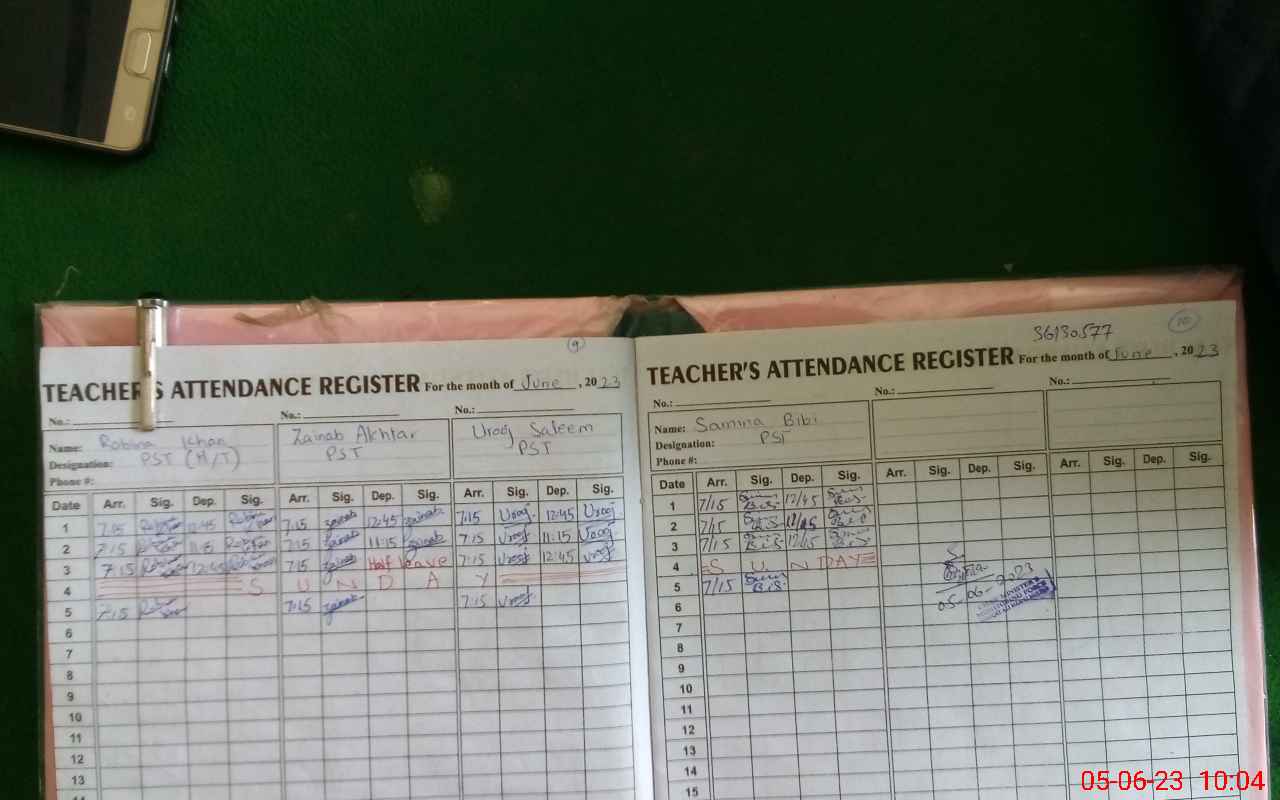 9
TEACHER'S ATTENDANCE REGISTER For the month of June, 2023
No.: No.: No.:
Name: Robina Khan Zainab Akhtar Urooj Saleem
Designation: PST (H/T) PST PST
Phone #:
Date Arr. Sig. Dep. Sig. Arr. Sig. Dep. Sig. Arr. Sig. Dep. Sig.
1 7:15 12:45 7:15 zainab 12:45 zainab 7:15 Urooj 12:45 Urooj
2 7:15 11:15 7:15 zainab 11:15 zainab 7:15 Urooj 11:15 Urooj
3 7:15 12:45 7:15 zainab Half leave 7:15 Urooj 12:45 Urooj
4 S U N D A Y
5 7:15 7:15 zainab 7:15 Urooj
6
7
8
9
10
11
12
13
36130577 10
TEACHER'S ATTENDANCE REGISTER For the month of June, 2023
No.: No.: No.:
Name: Samna Bibi
Designation: PST
Phone #:
Date Arr. Sig. Dep. Sig. Arr. Sig. Dep. Sig. Arr. Sig. Dep. Sig.
1 7/15 12/45
2 7/15
3 7/15
4 S U N DAY
5 7/15
6
7
8
9
10
11
12
13
14
15
05-06-2023
05-06-23 10:04